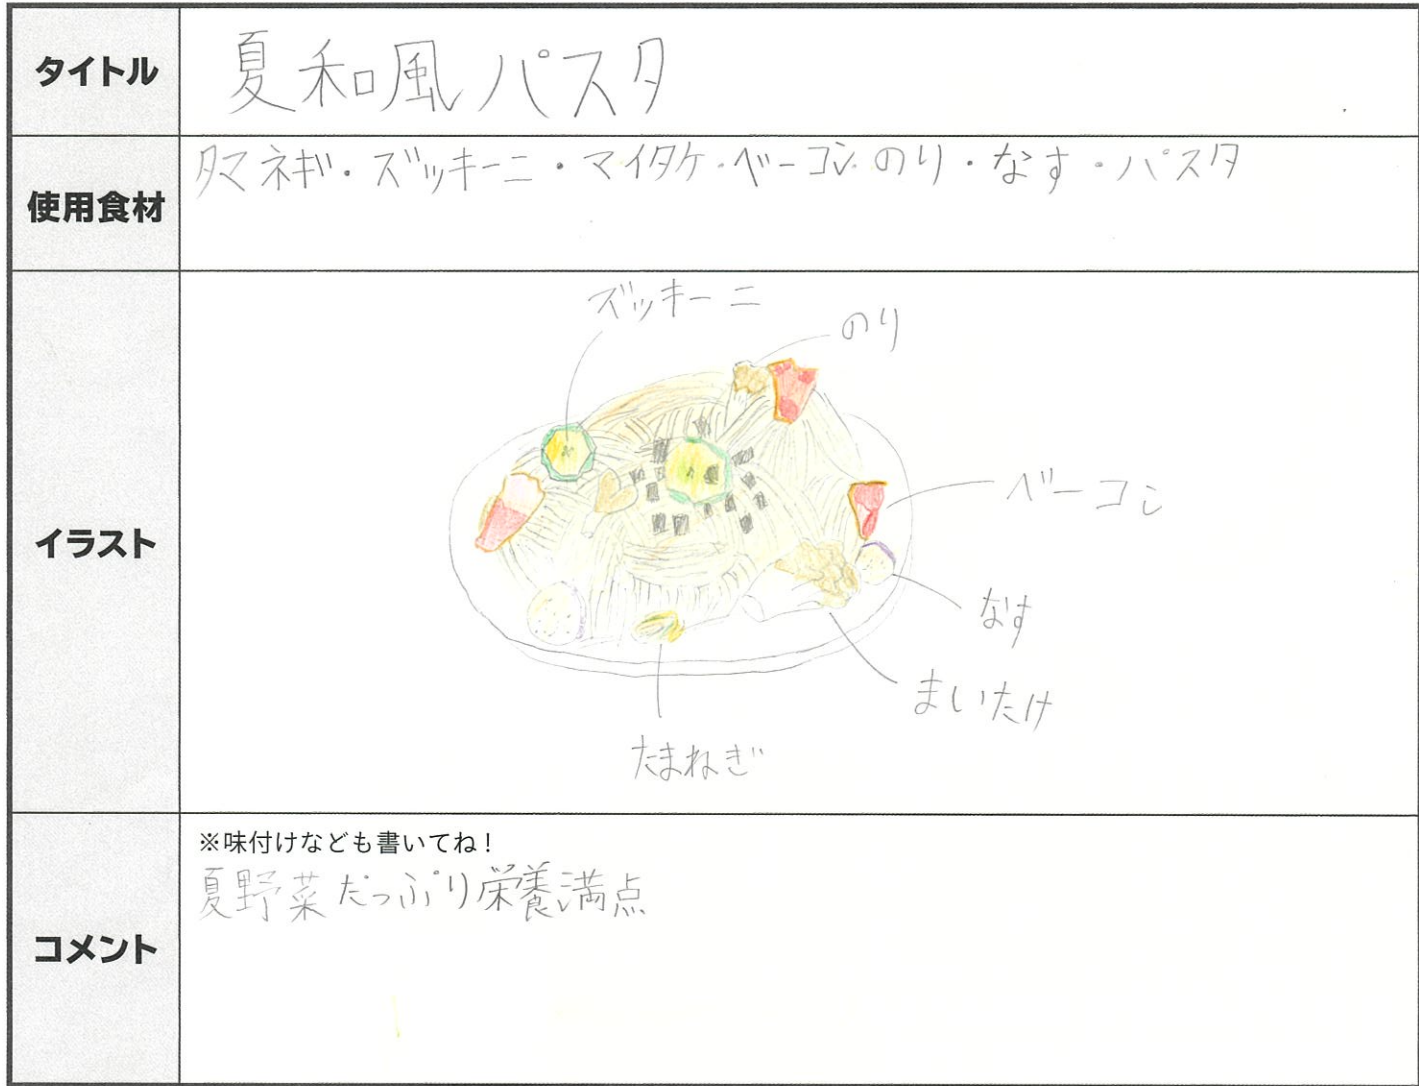 タイトル
夏和風パスタ
使用食材
タマネギ・ズッキーニ・マイタケ・ベーコン・のり・なす・パスタ
イラスト
ズッキーニ
のり
ベーコン
なす
まいたけ
たまねぎ
コメント
※味付けなども書いてね!
夏野菜たっぷり栄養満点